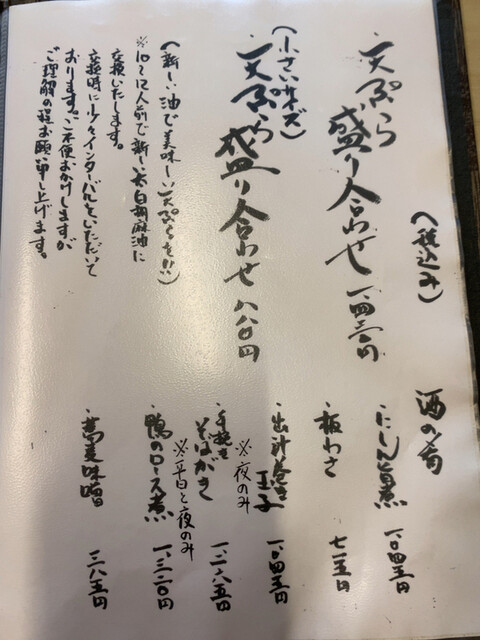 (税込み)
・天ぷら盛り合わせ 一、四三〇円
(小さい味ズ)
・天ぷら盛り合わせ 八八〇円
(新しい油で美味しい天ぷらを!!)
※10〜12人前で新しい太白胡麻油に
交換いたします。
交換時に少々インターバルをいただいて
おります。ご不便おかけしますが
ご理解の程お願い申し上げます。
酒の肴
・にしん旨煮 一、〇四五円
・板わさ 七一五円
・出汁巻き玉子 一、〇四五円
※夜のみ
・手挽きそばがき 一、二八五円
※平日と夜のみ
・鴨のロース煮 一、三二〇円
・蕎麦味噌 三八五円